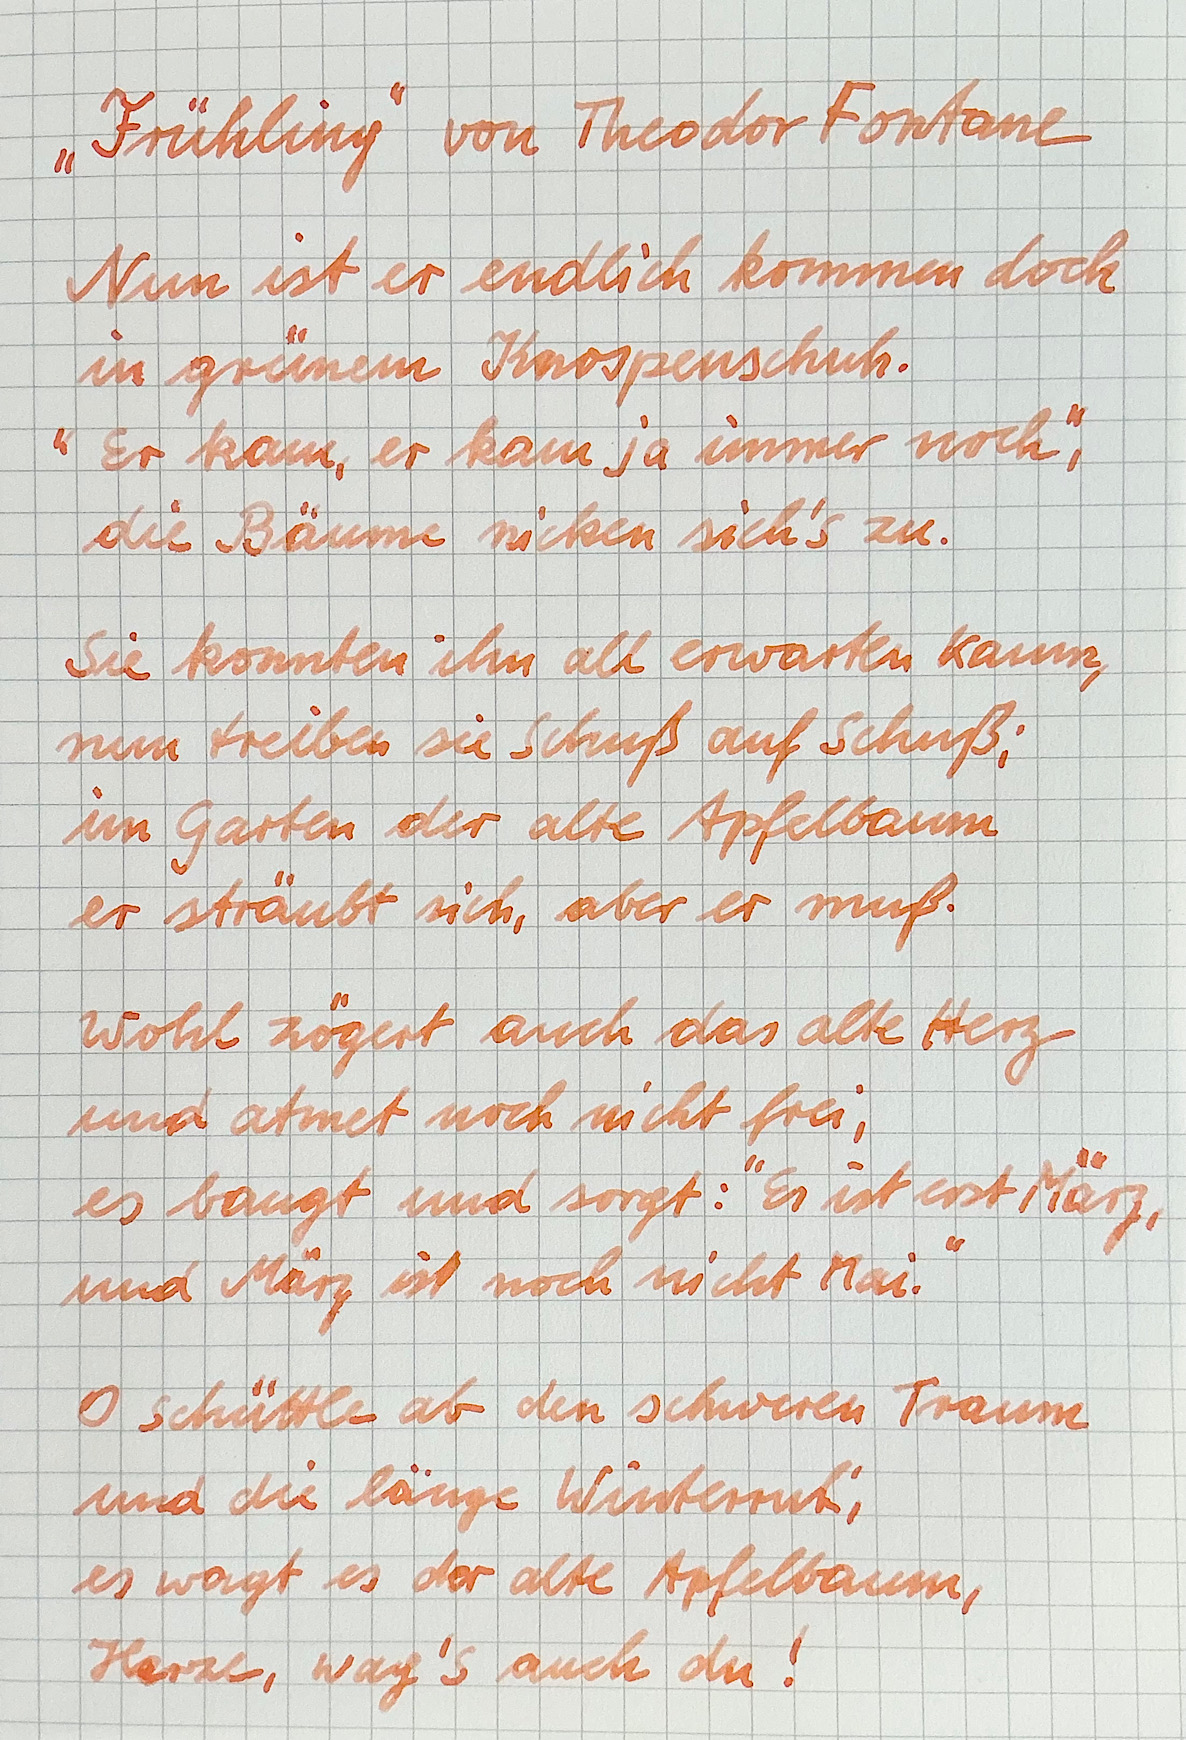 „Frühling“ von Theodor Fontane
Nun ist er endlich kommen doch
in grünem Knospenschuh.
“Er kam, er kam ja immer noch“,
die Bäume nicken sich's zu.
Sie konnten ihn all erwarten kaum,
nun treiben sie Schuß auf Schuß;
im Garten der alte Apfelbaum
er sträubt sich, aber er muß.
Wohl zögert auch das alte Herz
und atmet noch nicht frei,
es bangt und sorgt: "Es ist erst März,
und März ist noch nicht Mai."
O schüttle ab den schweren Traum
und die länge Winterruh',
es wagt es der alte Apfelbaum,
Herze, wag's auch du!